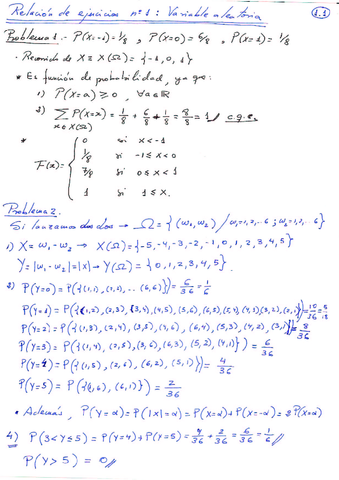 Relación de ejercicios nº 1: Variable aleatoria 1.1
Problema 1.- P(X=-1)=1/8, P(X=0)=6/8, P(X=1)=1/8
· Recorrido de X ≡ X(Ω) = {-1, 0, 1}
* Es función de probabilidad, ya que:
1) P(X=a) ≥ 0, ∀a∈ℝ
2) ∑ x∈X(Ω) P(X=x) = 1/8 + 6/8 + 1/8 = 8/8 = 1 // c.q.e.
* F(x) = { 0 si x < -1
1/8 si -1 ≤ x < 0
7/8 si 0 ≤ x < 1
1 si 1 ≤ x.
Problema 2.
Si lanzamos dos dados → Ω = {(w₁, w₂) / w₁=1,2,...6; w₂=1,2,...6}
1) X = w₁-w₂ → X(Ω) = {-5,-4,-3,-2,-1,0,1,2,3,4,5}
Y = |w₁-w₂| = |X| → Y(Ω) = {0,1,2,3,4,5}.
2) P(Y=0) = P({(1,1), (2,2), ... (6,6)}) = 6/36 = 1/6
P(Y=1) = P({(1,2), (2,3), (3,4), (4,5), (5,6), (6,5), (5,4), (4,3), (3,2), (2,1)}) = 10/36 = 5/18
P(Y=2) = P({(1,3), (2,4), (3,5), (4,6), (6,4), (5,3), (4,2), (3,1)}) = 8/36
P(Y=3) = P({(1,4), (2,5), (3,6), (6,3), (5,2), (4,1)}) = 6/36
P(Y=4) = P({(1,5), (2,6), (6,2), (5,1)}) = 4/36
P(Y=5) = P({(1,6), (6,1)}) = 2/36
· Además, P(Y=a) = P(|X|=a) = P(X=a) + P(X=-a) = 2P(X=a)
4) P(3<Y≤5) = P(Y=4) + P(Y=5) = 4/36 + 2/36 = 6/36 = 1/6 //
P(Y>5) = 0 //